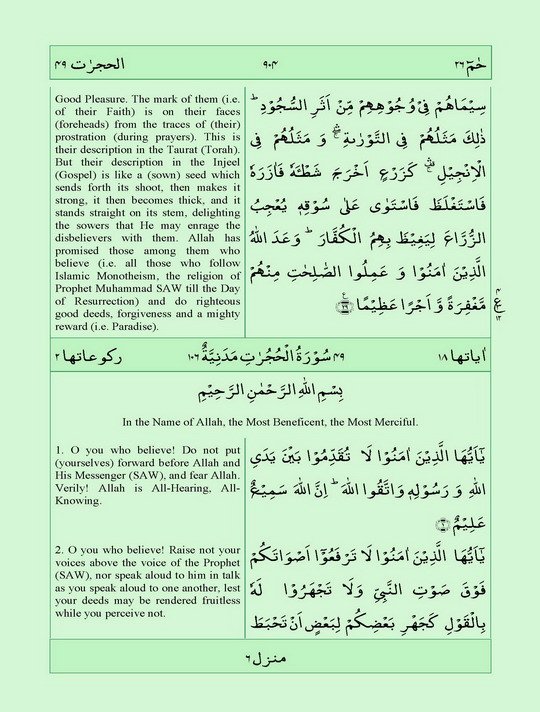 الحجرٰت ۴۹
۹۰۴
حٰمٓ ۲۶
Good Pleasure. The mark of them (i.e.
of their Faith) is on their faces
(foreheads) from the traces of (their)
prostration (during prayers). This is
their description in the Taurat (Torah).
But their description in the Injeel
(Gospel) is like a (sown) seed which
sends forth its shoot, then makes it
strong, it then becomes thick, and it
stands straight on its stem, delighting
the sowers that He may enrage the
disbelievers with them. Allah has
promised those among them who
believe (i.e. all those who follow
Islamic Monotheism, the religion of
Prophet Muhammad SAW till the Day
of Resurrection) and do righteous
good deeds, forgiveness and a mighty
reward (i.e. Paradise).
سِيْمَاهُمْ فِيْ وُجُوْهِهِمْ مِّنْ اَثَرِ السُّجُوْدِ ؕ
ذٰلِكَ مَثَلُهُمْ فِي التَّوْرٰىةِ ۛۖۚ وَ مَثَلُهُمْ فِي
الْاِنْجِيْلِ ۛ۫ۚ كَزَرْعٍ اَخْرَجَ شَطْـَٔهٗ فَاٰزَرَهٗ
فَاسْتَغْلَظَ فَاسْتَوٰى عَلٰى سُوْقِهٖ يُعْجِبُ
الزُّرَّاعَ لِيَغِيْظَ بِهِمُ الْكُفَّارَ ؕ وَعَدَ اللّٰهُ
الَّذِيْنَ اٰمَنُوْا وَ عَمِلُوا الصّٰلِحٰتِ مِنْهُمْ
مَّغْفِرَةً وَّ اَجْرًا عَظِيْمًا ﴿۲۹﴾
۴
ع
۱۲
ركوعاتها ۲
۴۹ سُوْرَةُ الْحُجُرٰتِ مَدَنِيَّةٌ ۱۰۶
اٰياتها ۱۸
بِسْمِ اللّٰهِ الرَّحْمٰنِ الرَّحِيْمِ
In the Name of Allah, the Most Beneficent, the Most Merciful.
1. O you who believe! Do not put
(yourselves) forward before Allah and
His Messenger (SAW), and fear Allah.
Verily! Allah is All-Hearing, All-
Knowing.
يٰۤاَيُّهَا الَّذِيْنَ اٰمَنُوْا لَا تُقَدِّمُوْا بَيْنَ يَدَيِ
اللّٰهِ وَ رَسُوْلِهٖ وَاتَّقُوا اللّٰهَ ؕ اِنَّ اللّٰهَ سَمِيْعٌ
عَلِيْمٌ ﴿۱﴾
2. O you who believe! Raise not your
voices above the voice of the Prophet
(SAW), nor speak aloud to him in talk
as you speak aloud to one another, lest
your deeds may be rendered fruitless
while you perceive not.
يٰۤاَيُّهَا الَّذِيْنَ اٰمَنُوْا لَا تَرْفَعُوْۤا اَصْوَاتَكُمْ
فَوْقَ صَوْتِ النَّبِيِّ وَلَا تَجْهَرُوْا لَهٗ
بِالْقَوْلِ كَجَهْرِ بَعْضِكُمْ لِبَعْضٍ اَنْ تَحْبَطَ
منزل ۶